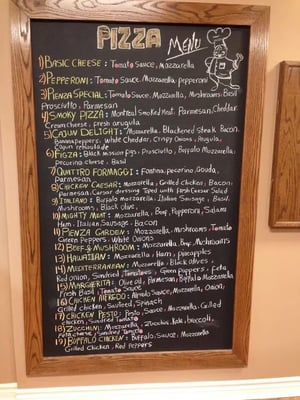 PIZZA MENU
1) BASIC CHEESE: Tomato Sauce, Mozzarella
2) PEPPERONI: Tomato Sauce, Mozzarella, pepperoni
3) PIENZA SPECIAL: Tomato Sauce, Mozzarella, Mushrooms, Basil
Prosciutto, Parmesan
4) SMOKY PIZZA: Montreal Smoked Meat, Parmesan, Cheddar,
Cream Cheese, fresh arugula
5) CAJUN DELIGHT: Mozzarella, Blackened Steak, Bacon,
Banana peppers, White Cheddar, Crispy Onions, Arugula,
Cajun remoulade
6) FIGZA: Black mission figs, Prosciutto, Buffalo Mozzarella,
pecorino cheese, Basil
7) QUATTRO FORMAGGI: Fontina, pecorino, Gouda,
Parmesan
8) CHICKEN CAESAR: Mozzarella, Grilled chicken, Bacon
Parmesan, Caesar dressing Topped with fresh Caesar Salad
9) ITALIANO: Buffalo Mozzarella, Italian Sausage, Basil,
Mushrooms, Black olives,
10) MIGHTY MEAT: Mozzarella, Beef, Pepperoni, Salami
Ham, Italian Sausage, Bacon
11) PIENZA GARDEN: Mozzarella, Mushrooms, Tomato
Green Peppers, White Onions
12) BEEF & MUSHROOM: Mozzarella, Beef, Mushrooms
13) HAWAIIAN: Mozzarella, Ham, pineapples
14) MEDITERRANEAN: Mozzarella, Black olives,
Red onion, Sundried Tomatoes, Green Peppers, Feta
15) MARGHERITA: Olive oil, Parmesan, Buffalo Mozzarella
Fresh Basil, Tomato Sauce
16) CHICKEN ALFREDO: Alfredo Sauce, Mozzarella, Onion,
Grilled chicken, Sauteed, Spinach
17) CHICKEN PESTO: Pesto, Sauce, Mozzarella, Grilled
chicken, Sundried Tomato
18) ZUCCHINI: Mozzarella, Zucchini, kale, broccoli,
feta cheese, Sundried Tomato
19) BUFFALO CHICKEN: Buffalo, Sauce, Mozzarella
Grilled Chicken, Red Peppers